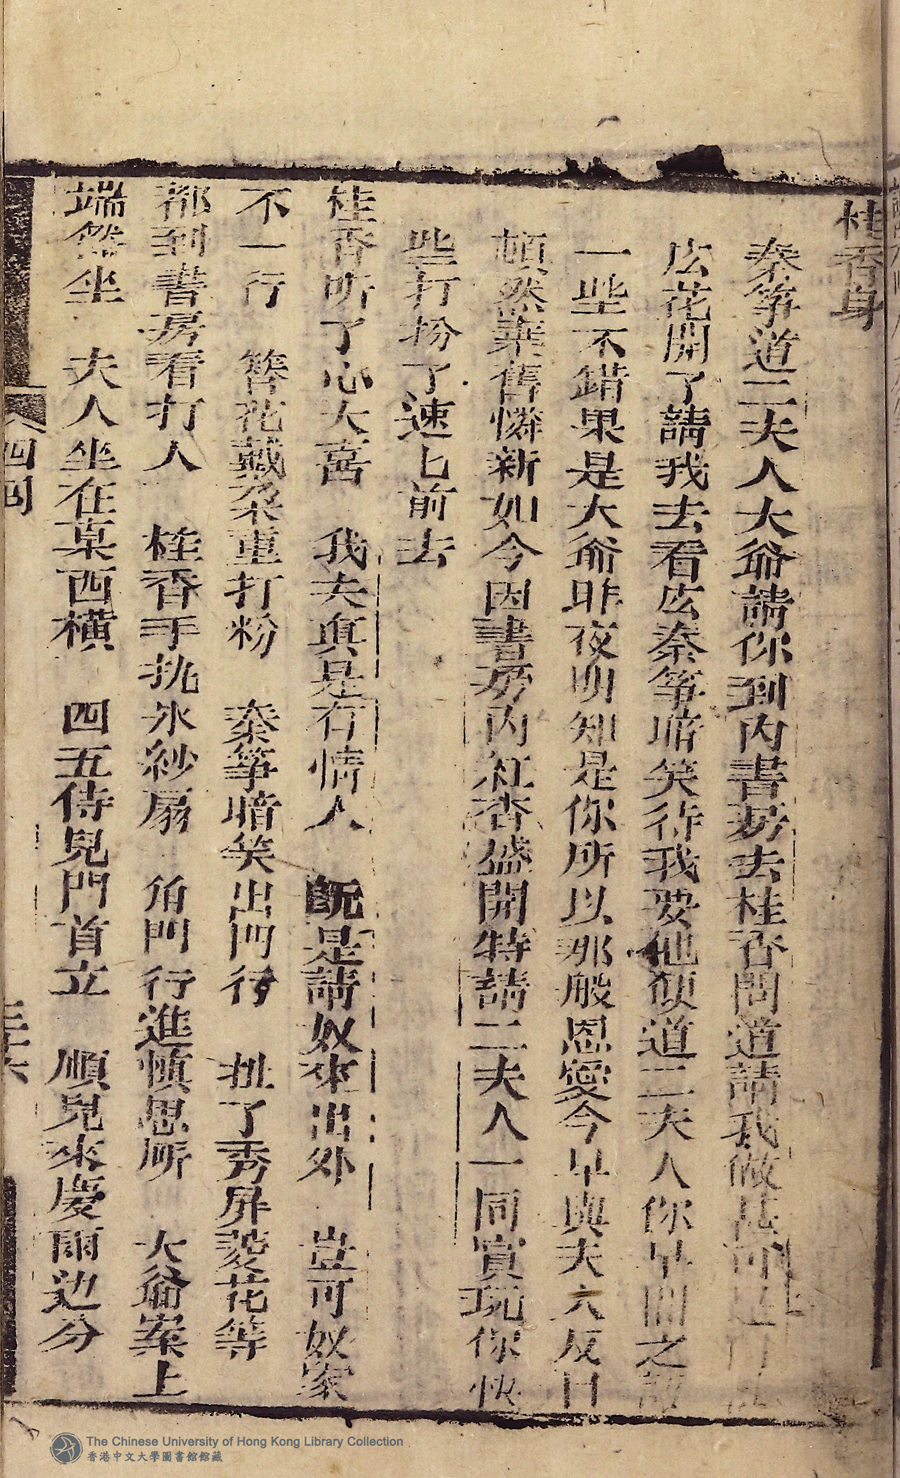 桂香身
秦筝道二夫人大爺請你到内書房去桂香問道請我做甚可是
広花開了請我去看広秦筝暗笑待我耍他便道二夫人你早間之
一些不錯果是大爺昨夜明知是你所以那般恩愛今早與夫人反目
頓然棄舊憐新如今因書房内紅杏盛開特請二夫人一同賞玩你快
些打扮了速匕前去
桂香听了心大喜　我夫真是有情人　既是請奴來出外　豈可奴家
不一行　簪花戴朶重打粉　秦筝暗笑出門行　扯了秀屏菱花等
都到書房看打人　桂香手执氷紗扇　角門行進慎思所　大爺案上
端然坐　夫人坐在桌西横　四五侍兒門首立　順兒來慶兩边分
四囬
The Chinese University of Hong Kong Library Collection
香港中文大學圖書館館藏